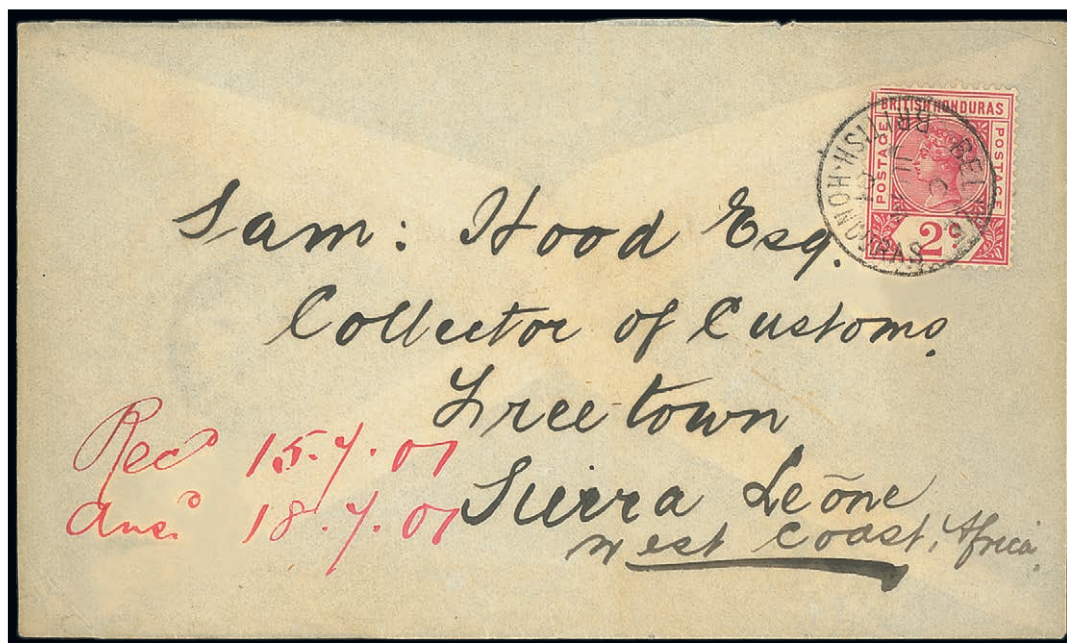 BRITISH HONDURAS
POSTAGE
POSTAGE
2c
BRITISH·HONDURAS
Sam: Hood Esq.
Collector of Customs,
Freetown
Sierra Leōne
West Coast, Africa.
Recd 15.7.01
Ansd 18.7.01